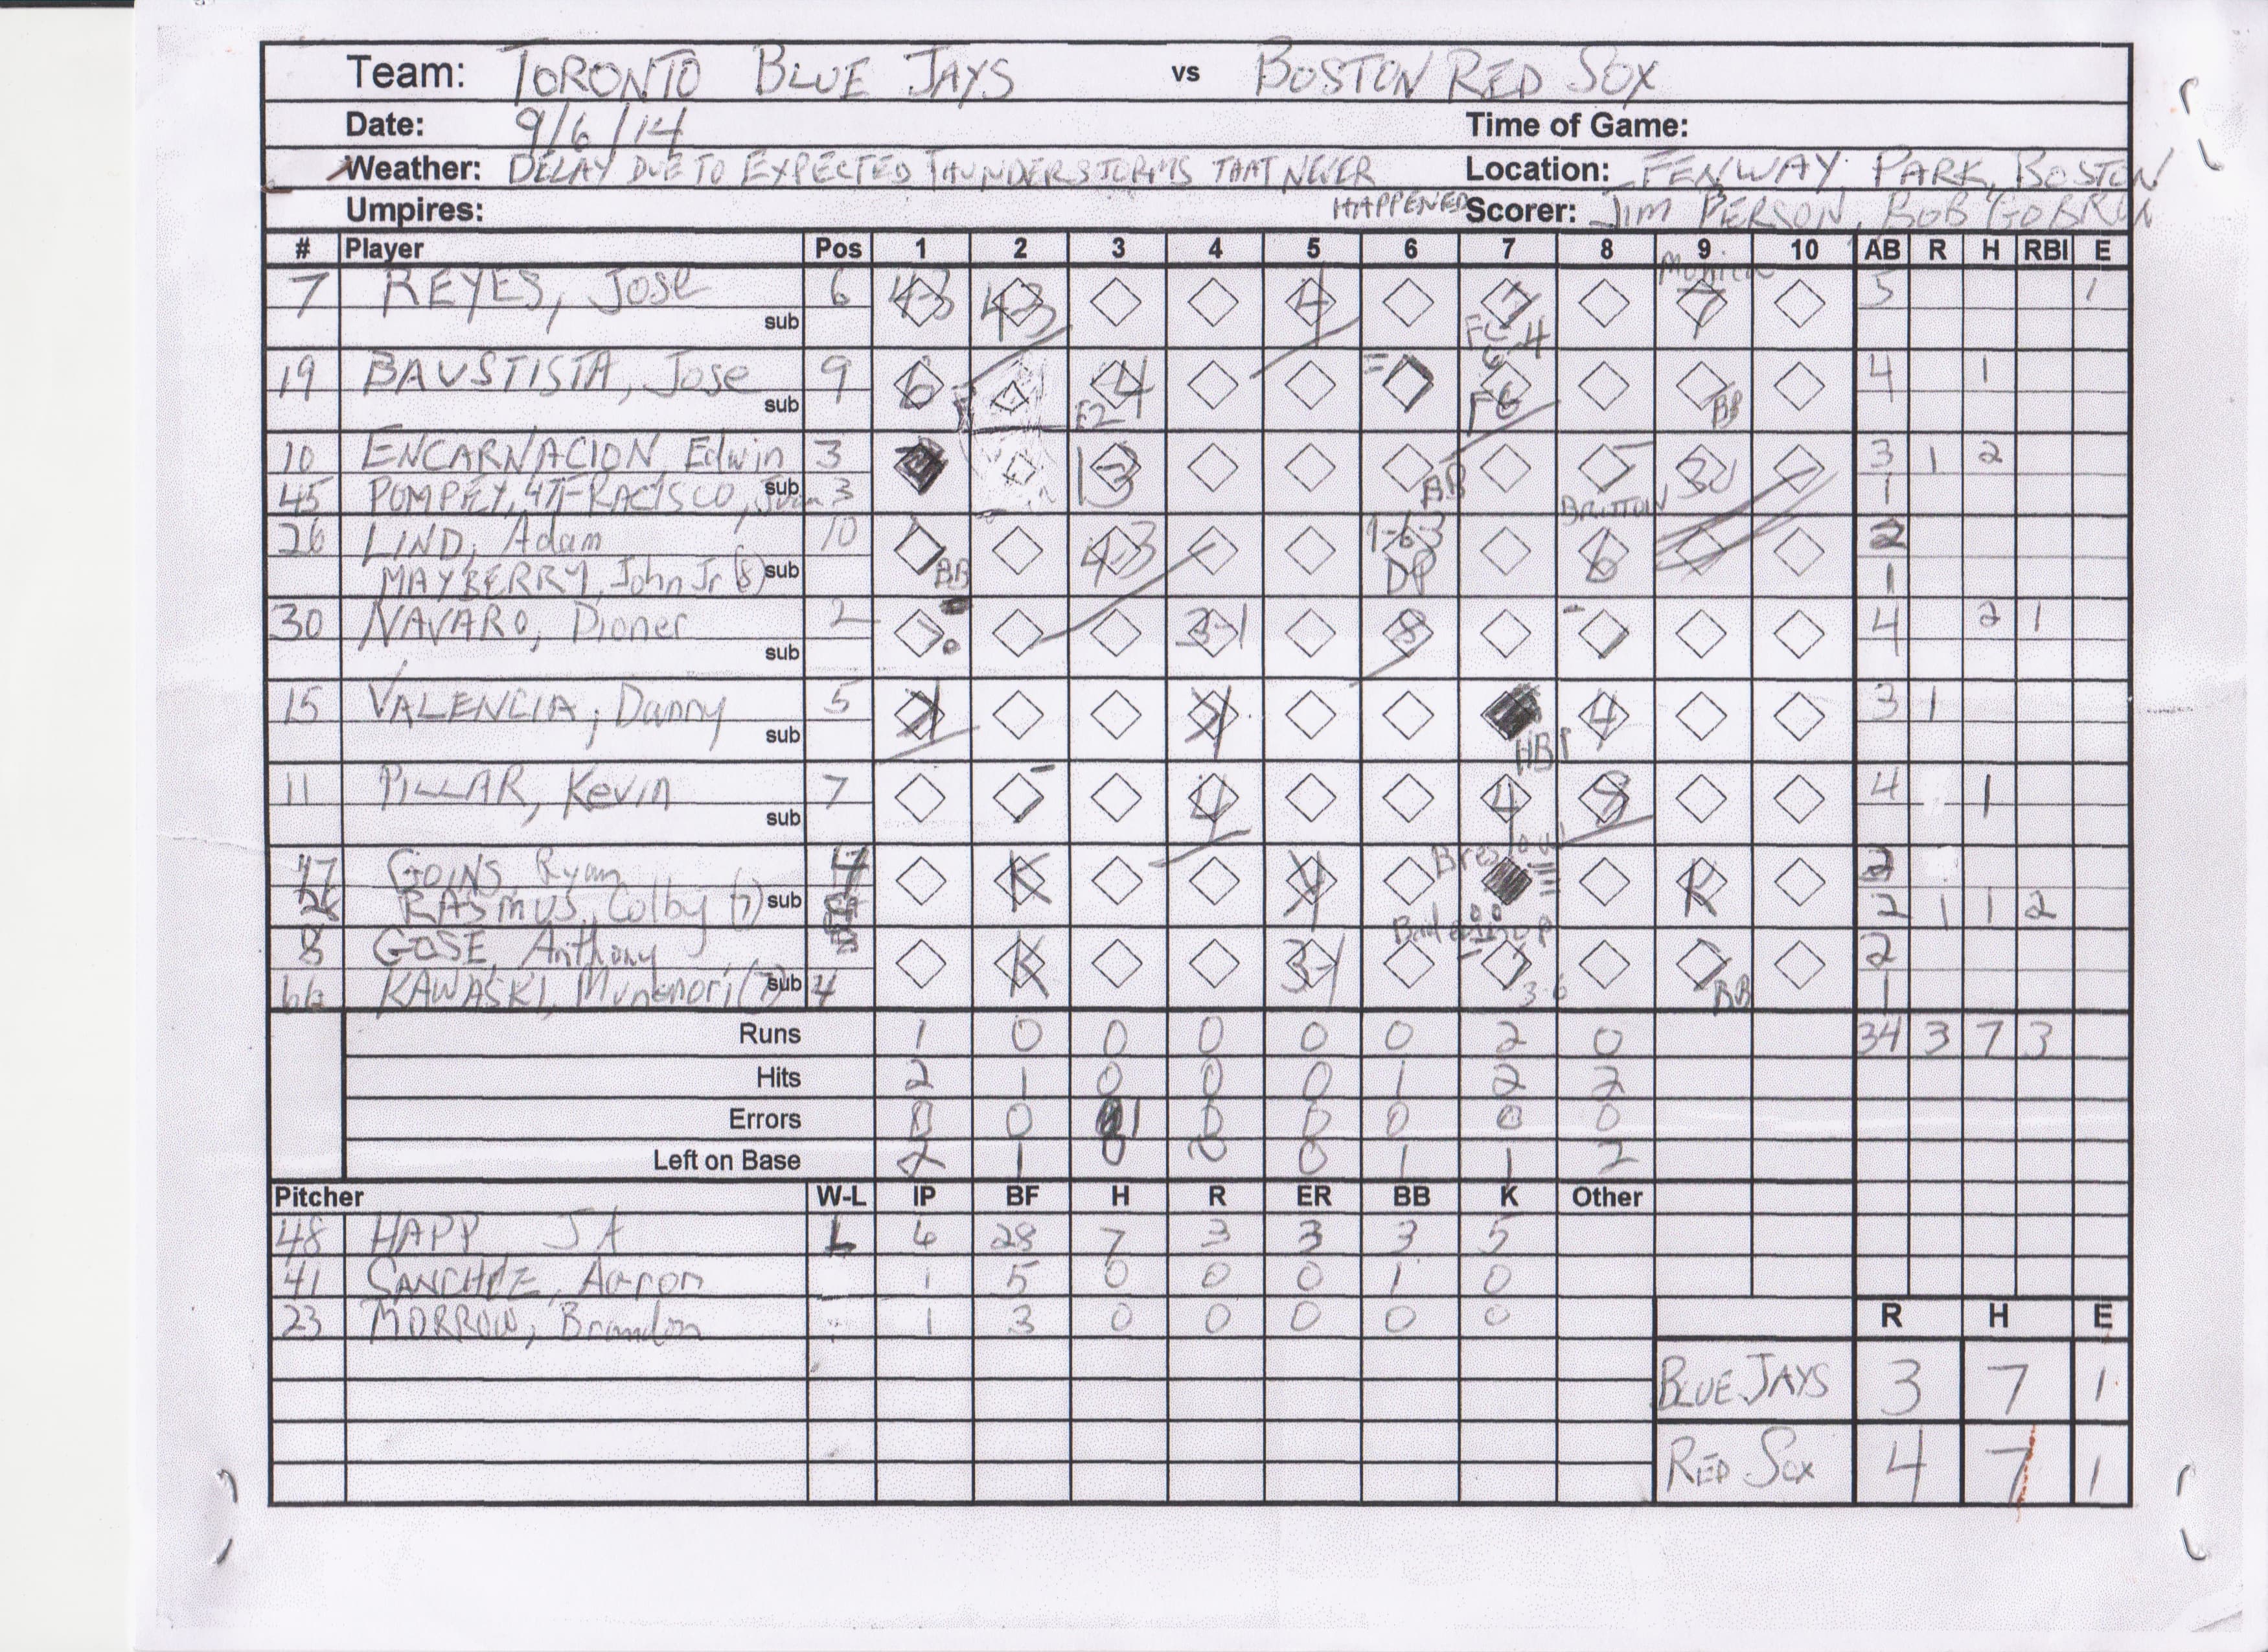 Team: TORONTO BLUE JAYS vs BOSTON RED SOX
Date: 9/6/14 Time of Game:
Weather: DELAY DUE TO EXPECTED THUNDERSTORMS THAT NEVER HAPPENED Location: FENWAY PARK, BOSTON
Umpires: Scorer: JIM PERSON, BOB
# Player Pos 1 2 3 4 5 6 7 8 9 10 AB R H RBI E
7 REYES, Jose 6 4-3 4-3 4 7 FC 6-4 7 5 1
sub
19 BAUSTISTA, Jose 9 6 E2 4 F6 BB 4 1
sub
10 ENCARNACION, Edwin 3 13 3U 3 1 2
45 sub 3 BB BRITTON 1
26 LIND, Adam 10 BB 4-3 1-6-3 DP 6 2
MAYBERRY, John Jr (8) sub 1
30 NAVARO, Dioner 2 7 3-1 8 4 2 1
sub
15 VALENCIA, Danny 5 HBP 4 3 1
sub
11 PILLAR, Kevin 7 4 4 8 4 1
sub
GOINS, Ryan K Breslow K 2
RASMUS, Colby (7) sub 2 1 1 2
8 GOSE, Anthony K 3-1 3-6 BB 2
66 KAWASKI, Munenori (7) sub 4 1
Runs 1 0 0 0 0 0 2 0 34 3 7 3
Hits 2 1 0 0 0 1 2 2
Errors 0 0 1 0 0 0 0 0
Left on Base 2 1 0 0 0 1 1 2
Pitcher W-L IP BF H R ER BB K Other
48 HAPP JA L 6 28 7 3 3 3 5
41 SANCHEZ, Aaron 1 5 0 0 0 1 0
23 MORROW, Brandon 1 3 0 0 0 0 0
R H E
BLUE JAYS 3 7 1
RED SOX 4 7 1